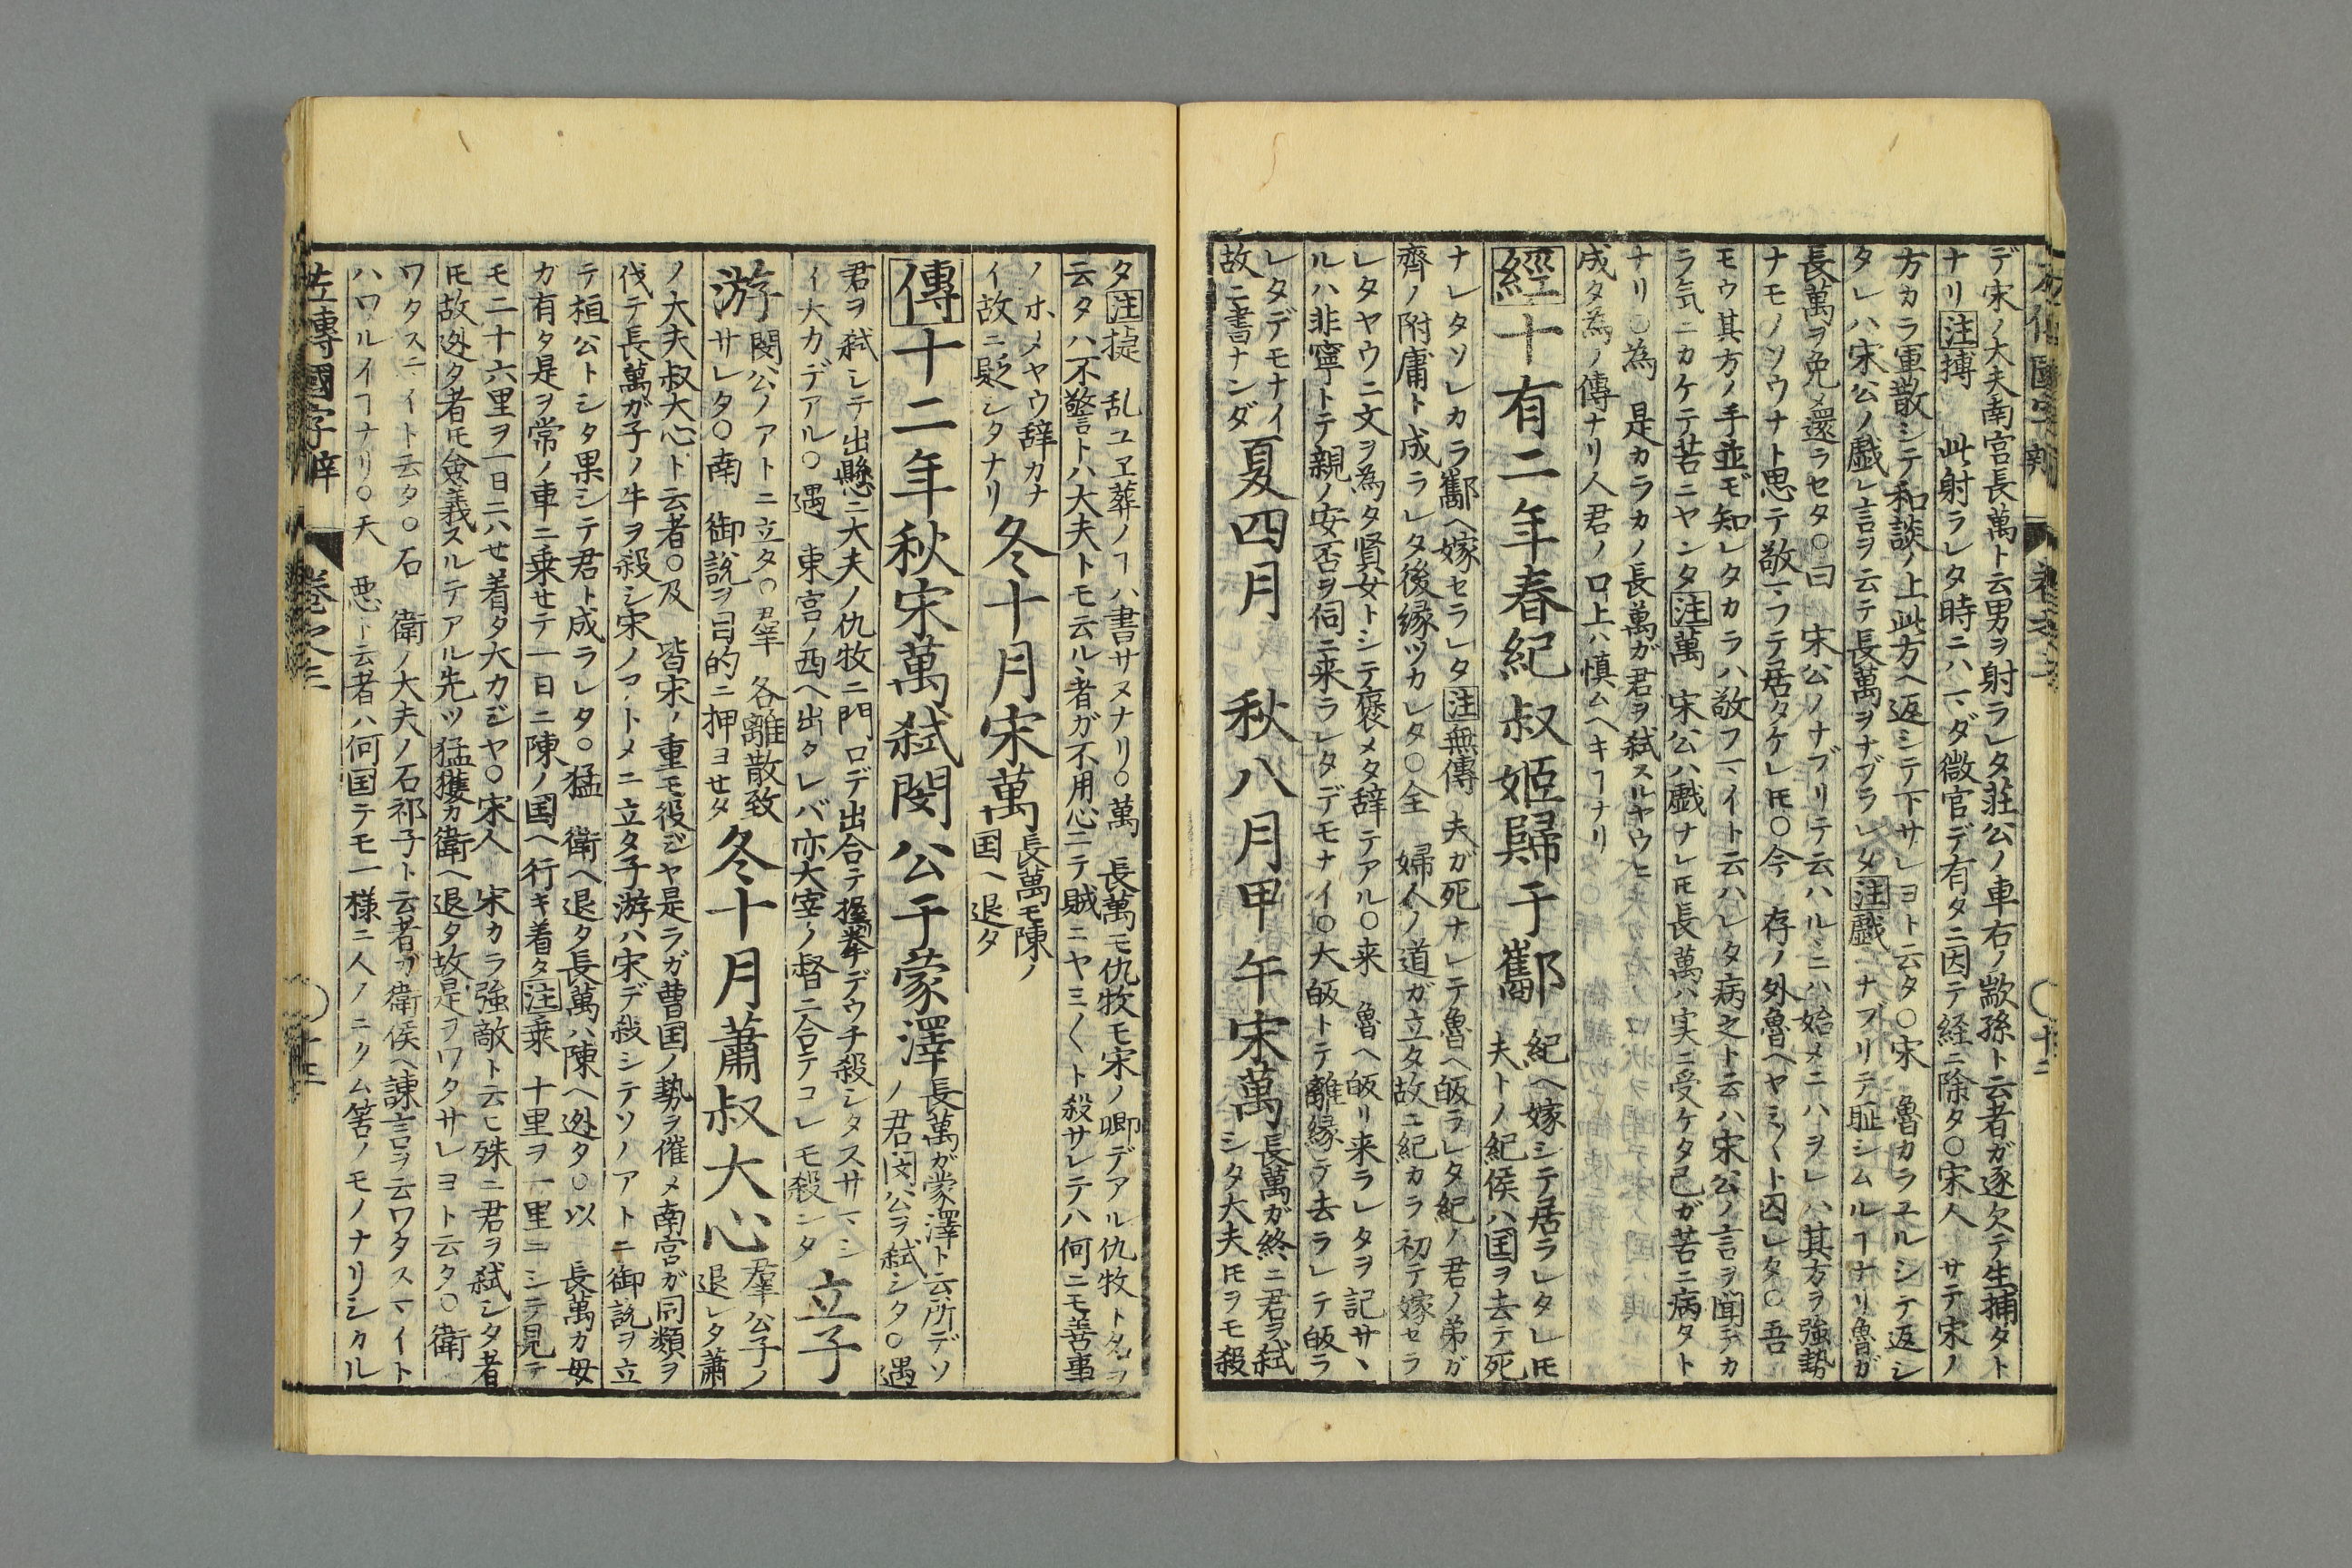 左傳國字辯 卷之三 ○十二
デ宋ノ大夫南宮長萬ト云男ヲ射ラレタ莊公ノ車右ノ歂孫ト云者ガ逐欠テ生捕タト
ナリ注搏 此射ラレタ時ニハマダ微官デ有タニ因テ経ニ除タ○宋人 サテ宋ノ
方カラ軍散シテ和談ノ上此方ヘ返シテ下サレヨト云タ○宋 魯カラユルシテ返シ
タレハ宋公ノ戯レ言ヲ云テ長萬ヲナブラレタ注戯 ナブリテ耻シムルヿナリ魯ガ
長萬ヲ免メ還ラセタ○曰 宋公ノナブリテ云ハルヽニハ始メニハヲレハ其方ヲ強勢
ナモノソウナト思テ敬マフテ居タケレ𪜈○今 存ノ外魯ヘヤミ〱ト囚レタ○吾
モウ其方ノ手並モ知レタカラハ敬フマイト云ハレタ病之ト云ハ宋公ノ言ヲ聞テカ
ラ気ニカケテ苦ニヤンタ注萬 宋公ハ戯ナレ𪜈長萬ハ実ニ受ケタ己ガ苦ニ病タト
ナリ○為 是カラカノ長萬ガ君ヲ弑スルヤウヒ
成タ為ノ傳ナリ人君ノ口上ハ慎ムヘキヿナリ
經十有二年春紀叔姬歸于酅 紀ヘ嫁シテ居ラレタレ𪜈
夫トノ紀侯ハ国ヲ去テ死
ナレタソレカラ酅ヘ嫁セラレタ注無傳 夫ガ死ナレテ魯ヘ皈ラレタ紀ノ君ノ弟ガ
齊ノ附庸ト成ラレタ後縁ツカレタ○全 婦人ノ道ガ立タ故ニ紀カラ初テ嫁セラ
レタヤウニ文ヲ為タ賢女トシテ褒メタ辞テアル○来 魯ヘ皈リ来ラレタヲ記サヽ
ルハ非寧トテ親ノ安否ヲ伺ニ来ラレタデモナイ○大皈トテ離縁テ去ラレテ皈ラ
レタデモナイ
故ニ書ナンダ
夏四月 秋八月甲午宋萬
長萬ガ終ニ君ヲ弑
シタ大夫𪜈ヲモ殺
タ注捷 乱ユヱ葬ノヿハ書サヌナリ○萬 長萬モ仇牧モ宋ノ卿デアル仇牧トタヲ
云タハ不警トハ大夫トモ云ルヽ者ガ不用心ニテ賊ニヤミ〱ト殺サレテハ何ニモ善事
ノホメヤウ辞カナ
イ故ニ貶シタナリ
冬十月宋萬
長萬モ陳ノ
国ヘ退タ
傳十二年秋宋萬弑閔公于蒙澤
長萬ガ蒙澤ト云所デソ
ノ君閔公ヲ弑シタ○遇
君ヲ弑シテ出懸ニ大夫ノ仇牧ニ門口デ出合テ握拳デウチ殺シタスサマシ
イ大力デアル○遇 東宮ノ西ヘ出タレバ亦大宰ノ督ニ合テコレモ殺シタ
立子
游 閔公ノアトニ立タ○羣 各離散致
サレタ○南 御説ヲ目的ニ押ヨセタ
冬十月蕭叔大心
羣公子ノ
退レタ蕭
ノ大夫叔大心ト云者○及 皆宋ノ重モ役ジヤ是ラガ曹国ノ勢ヲ催メ南宮ガ同類ヲ
伐テ長萬ガ子ノ牛ヲ殺シ宋ノマトメニ立タ子游ハ宋デ殺シテソノアトニ御説ヲ立
テ桓公トシタ果シテ君ト成ラレタ○猛 衛ヘ退タ長萬ハ陳ヘ迯タ○以 長萬カ母
カ有タ是ヲ常ノ車ニ乗セテ一日ニ陳ノ国ヘ行キ着タ注乗 十里ヲ一里ニシテ見テ
モ二十六里ヲ一日ニハセ着タ大カジヤ○宋人 宋カラ強敵ト云ヒ殊ニ君ヲ弑シタ者
𪜈故迯タ者𪜈僉義スルテアル先ツ猛獲カ衛ヘ退タ故是ヲワタサレヨト云タ○衛
ワタスマイト云タ○石 衛ノ大夫ノ石祁子ト云者ガ衛侯ヘ諫言ヲ云ワタスマイト
ハワルイヿナリ○天 悪ト云者ハ何国テモ一様ニ人ノニクム筈ノモノナリシカル
左傳國字辯 卷之三 ○十三